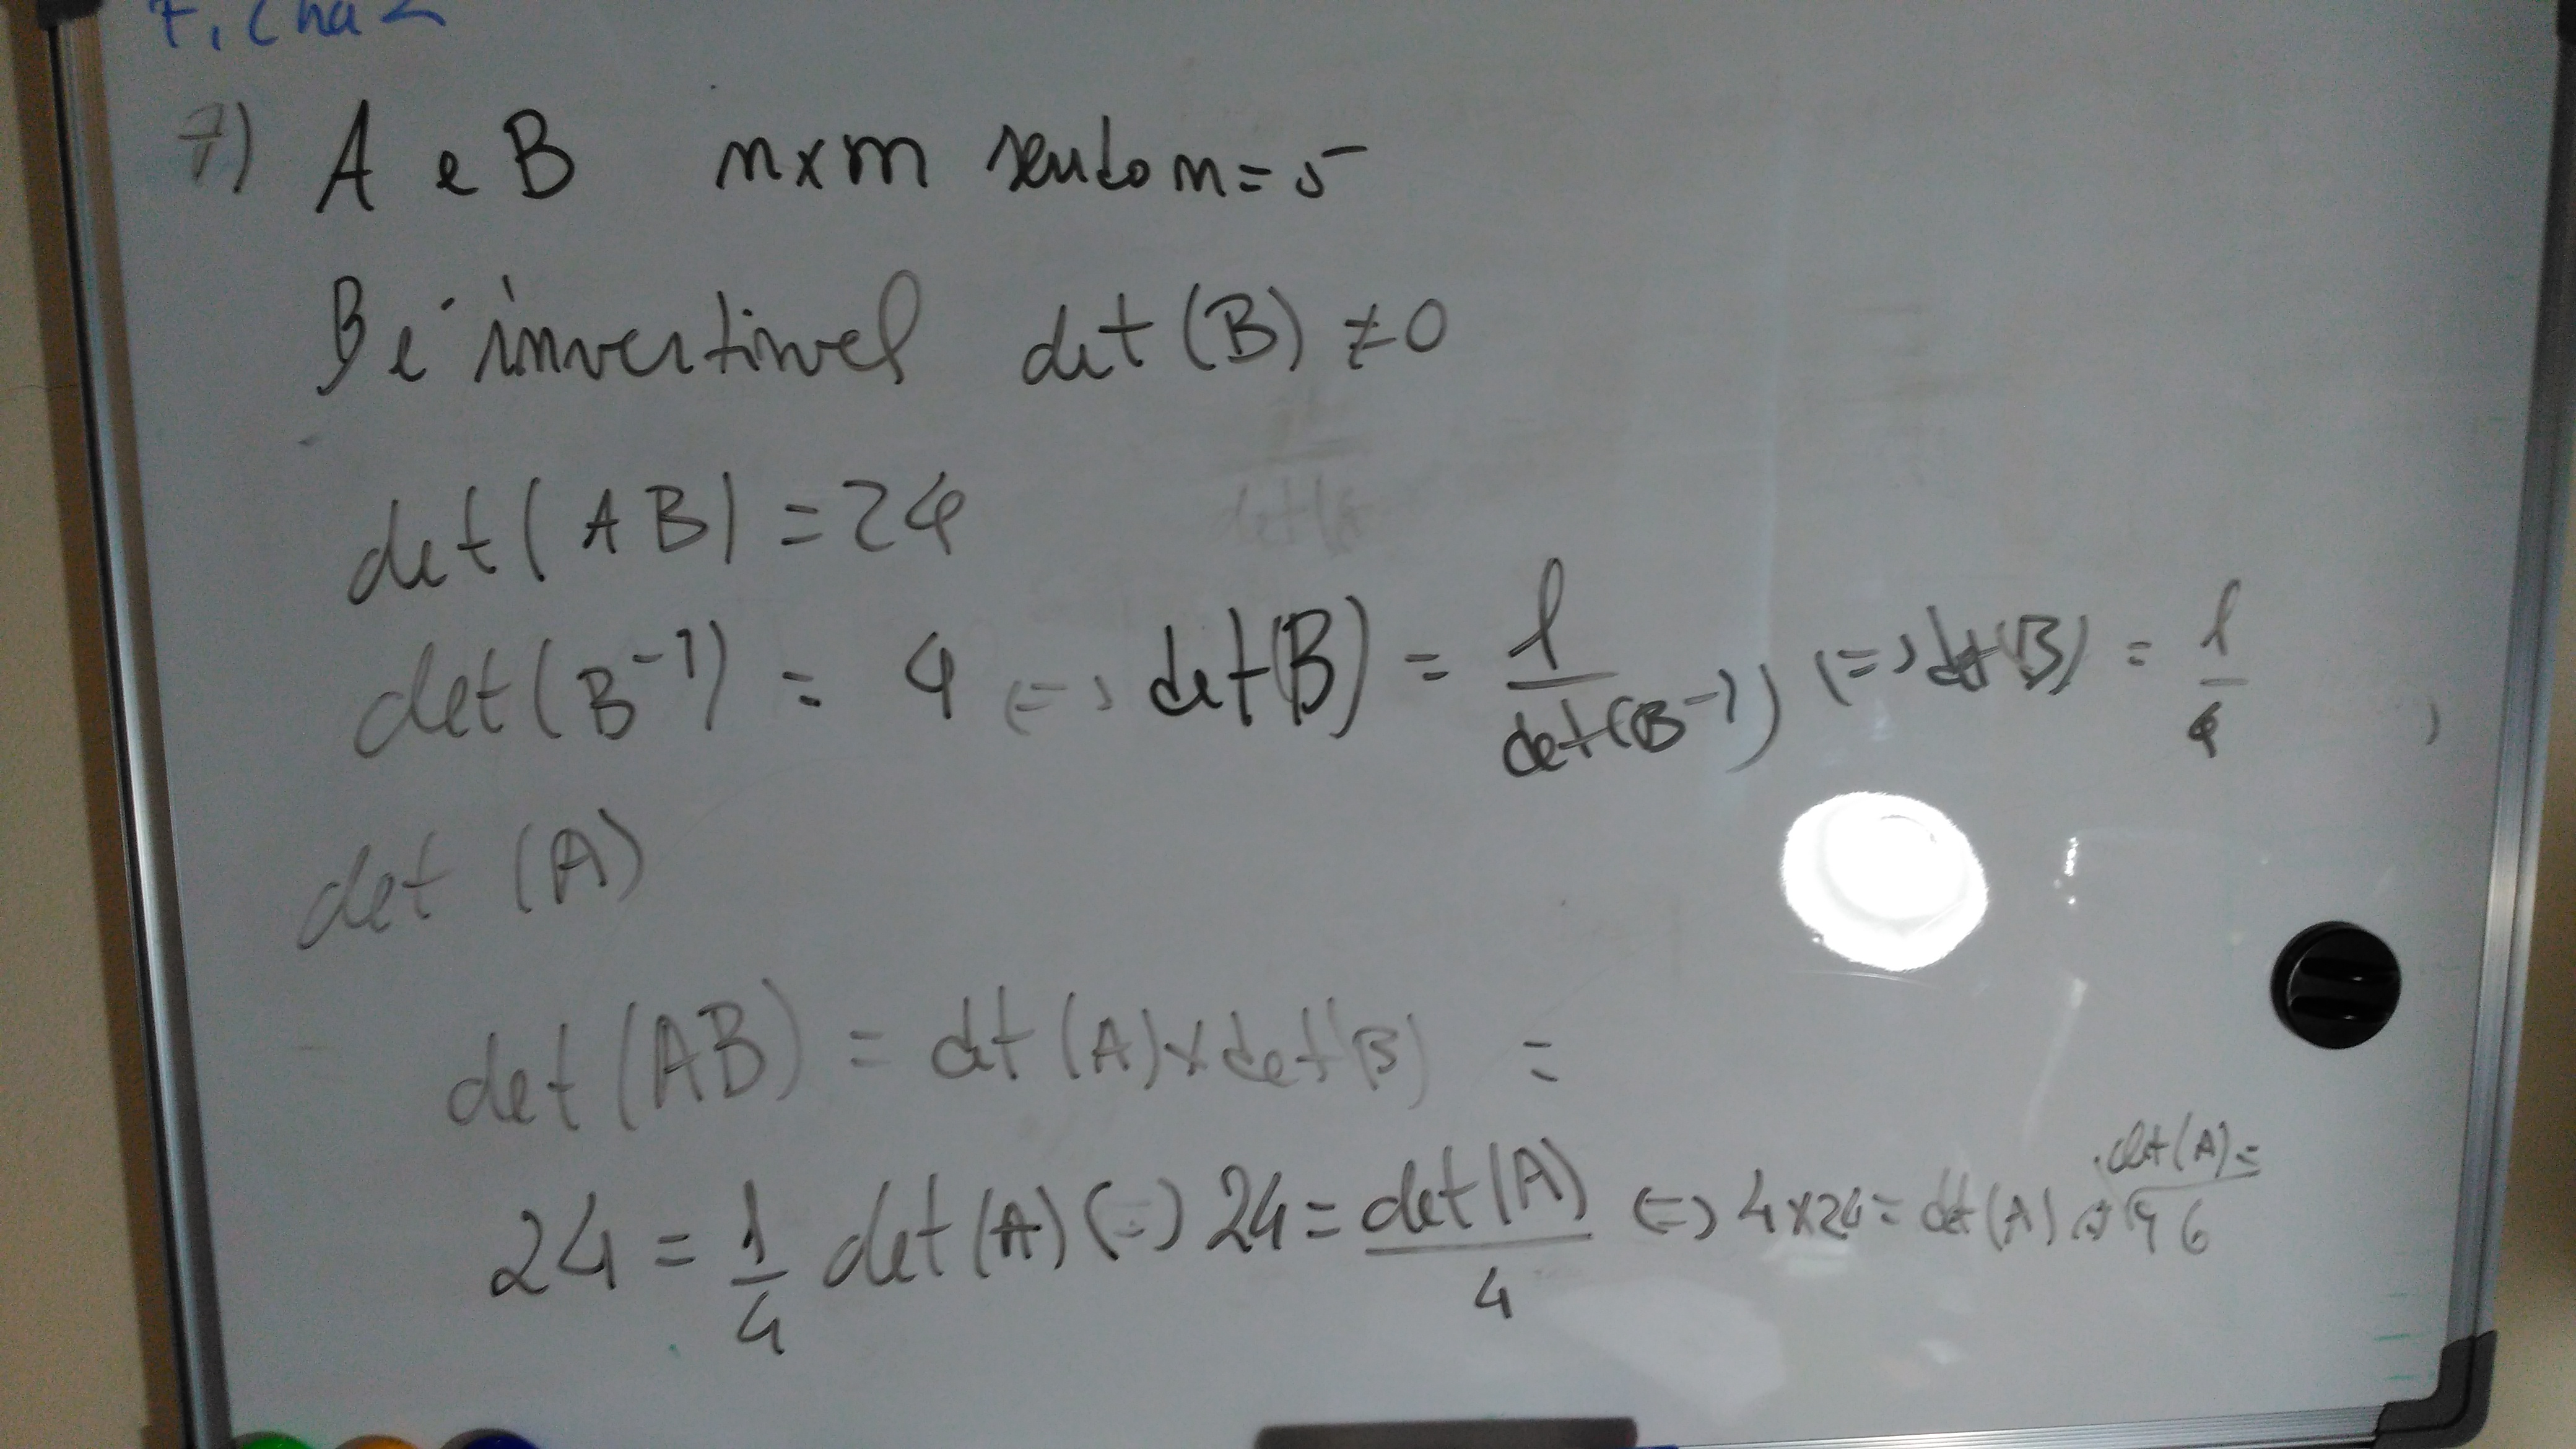 Ficha 2
7) A e B nxn sendo n=5
B é invertivel det (B) ≠0
det(AB)=24
det(B⁻¹) = 4 <=> det(B) = 1/det(B⁻¹) <=> det(B) = 1/4
det (A)
det (AB) = det (A) x det(B) =
24 = 1/4 det(A) <=> 24 = det(A)/4 <=> 4x24 = det(A)
det(A) =
96